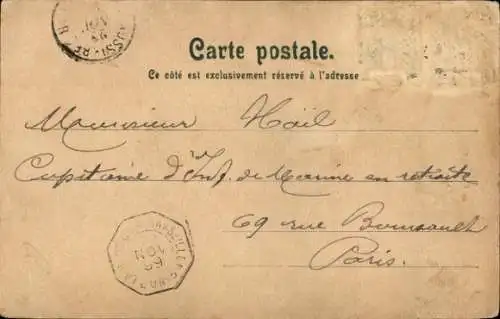 Carte postale.
Ce côté est exclusivement réservé à l'adresse
Monsieur Hoël
Capitaine d'Inf. de Marine en retraite
69 rue Boursault
Paris.